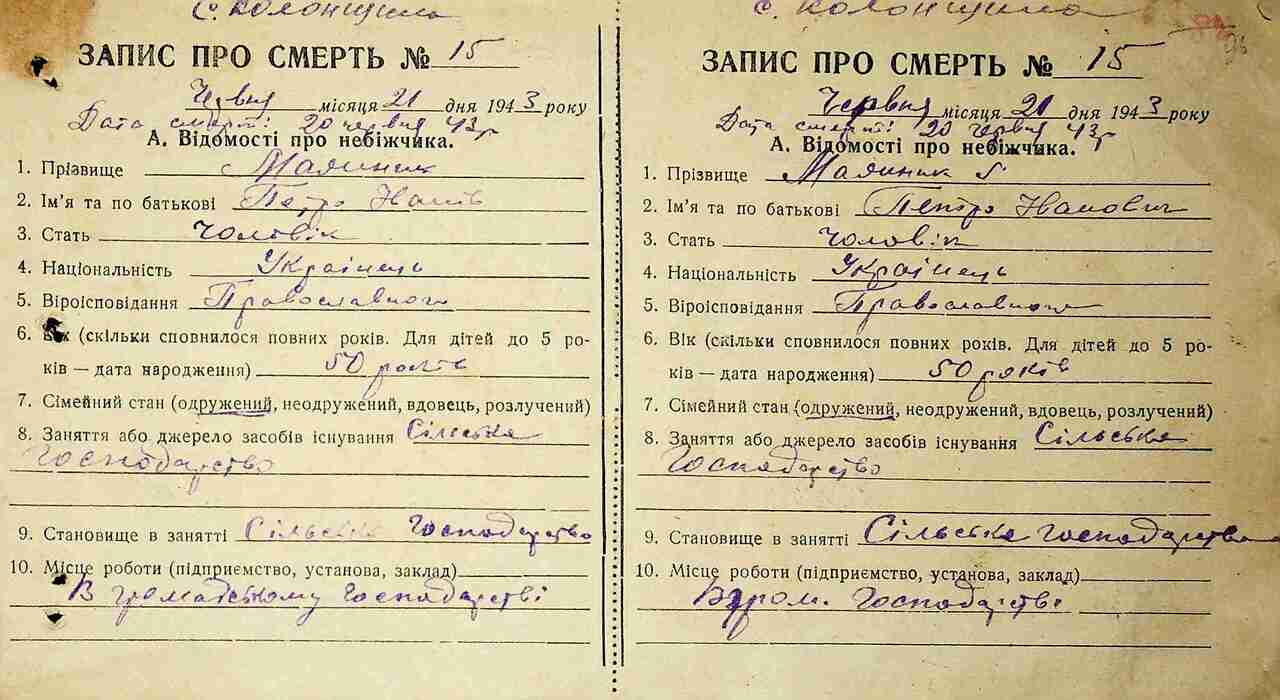 с. Колонщина
ЗАПИС ПРО СМЕРТЬ № 15
Червня місяця 21 дня 1943 року
Дата смерті: 20 червня 43 р
А. Відомості про небіжчика.
1. Прізвище
2. Ім'я та по батькові Петро Іванів
3. Стать Чоловік
4. Національність Українець
5. Віроісповідання Православного
6. Вік (скільки сповнилося повних років. Для дітей до 5 ро-
ків — дата народження) 50 років
7. Сімейний стан (одружений, неодружений, вдовець, розлучений)
8. Заняття або джерело засобів існування Сільське
Господарство
9. Становище в занятті Сільське Господарство
10. Місце роботи (підприємство, установа, заклад)
В громадському Господарстві
с. Колонщина
ЗАПИС ПРО СМЕРТЬ № 15
Червня місяця 21 дня 1943 року
Дата смерті: 20 червня 43 р
А. Відомості про небіжчика.
1. Прізвище
2. Ім'я та по батькові Петро Іванович
3. Стать Чоловік
4. Національність Українець
5. Віроісповідання Православного
6. Вік (скільки сповнилося повних років. Для дітей до 5 ро-
ків — дата народження) 50 років
7. Сімейний стан (одружений, неодружений, вдовець, розлучений)
8. Заняття або джерело засобів існування Сільське
Господарство
9. Становище в занятті Сільське Господарство
10. Місце роботи (підприємство, установа, заклад)
В гром. Господарстві